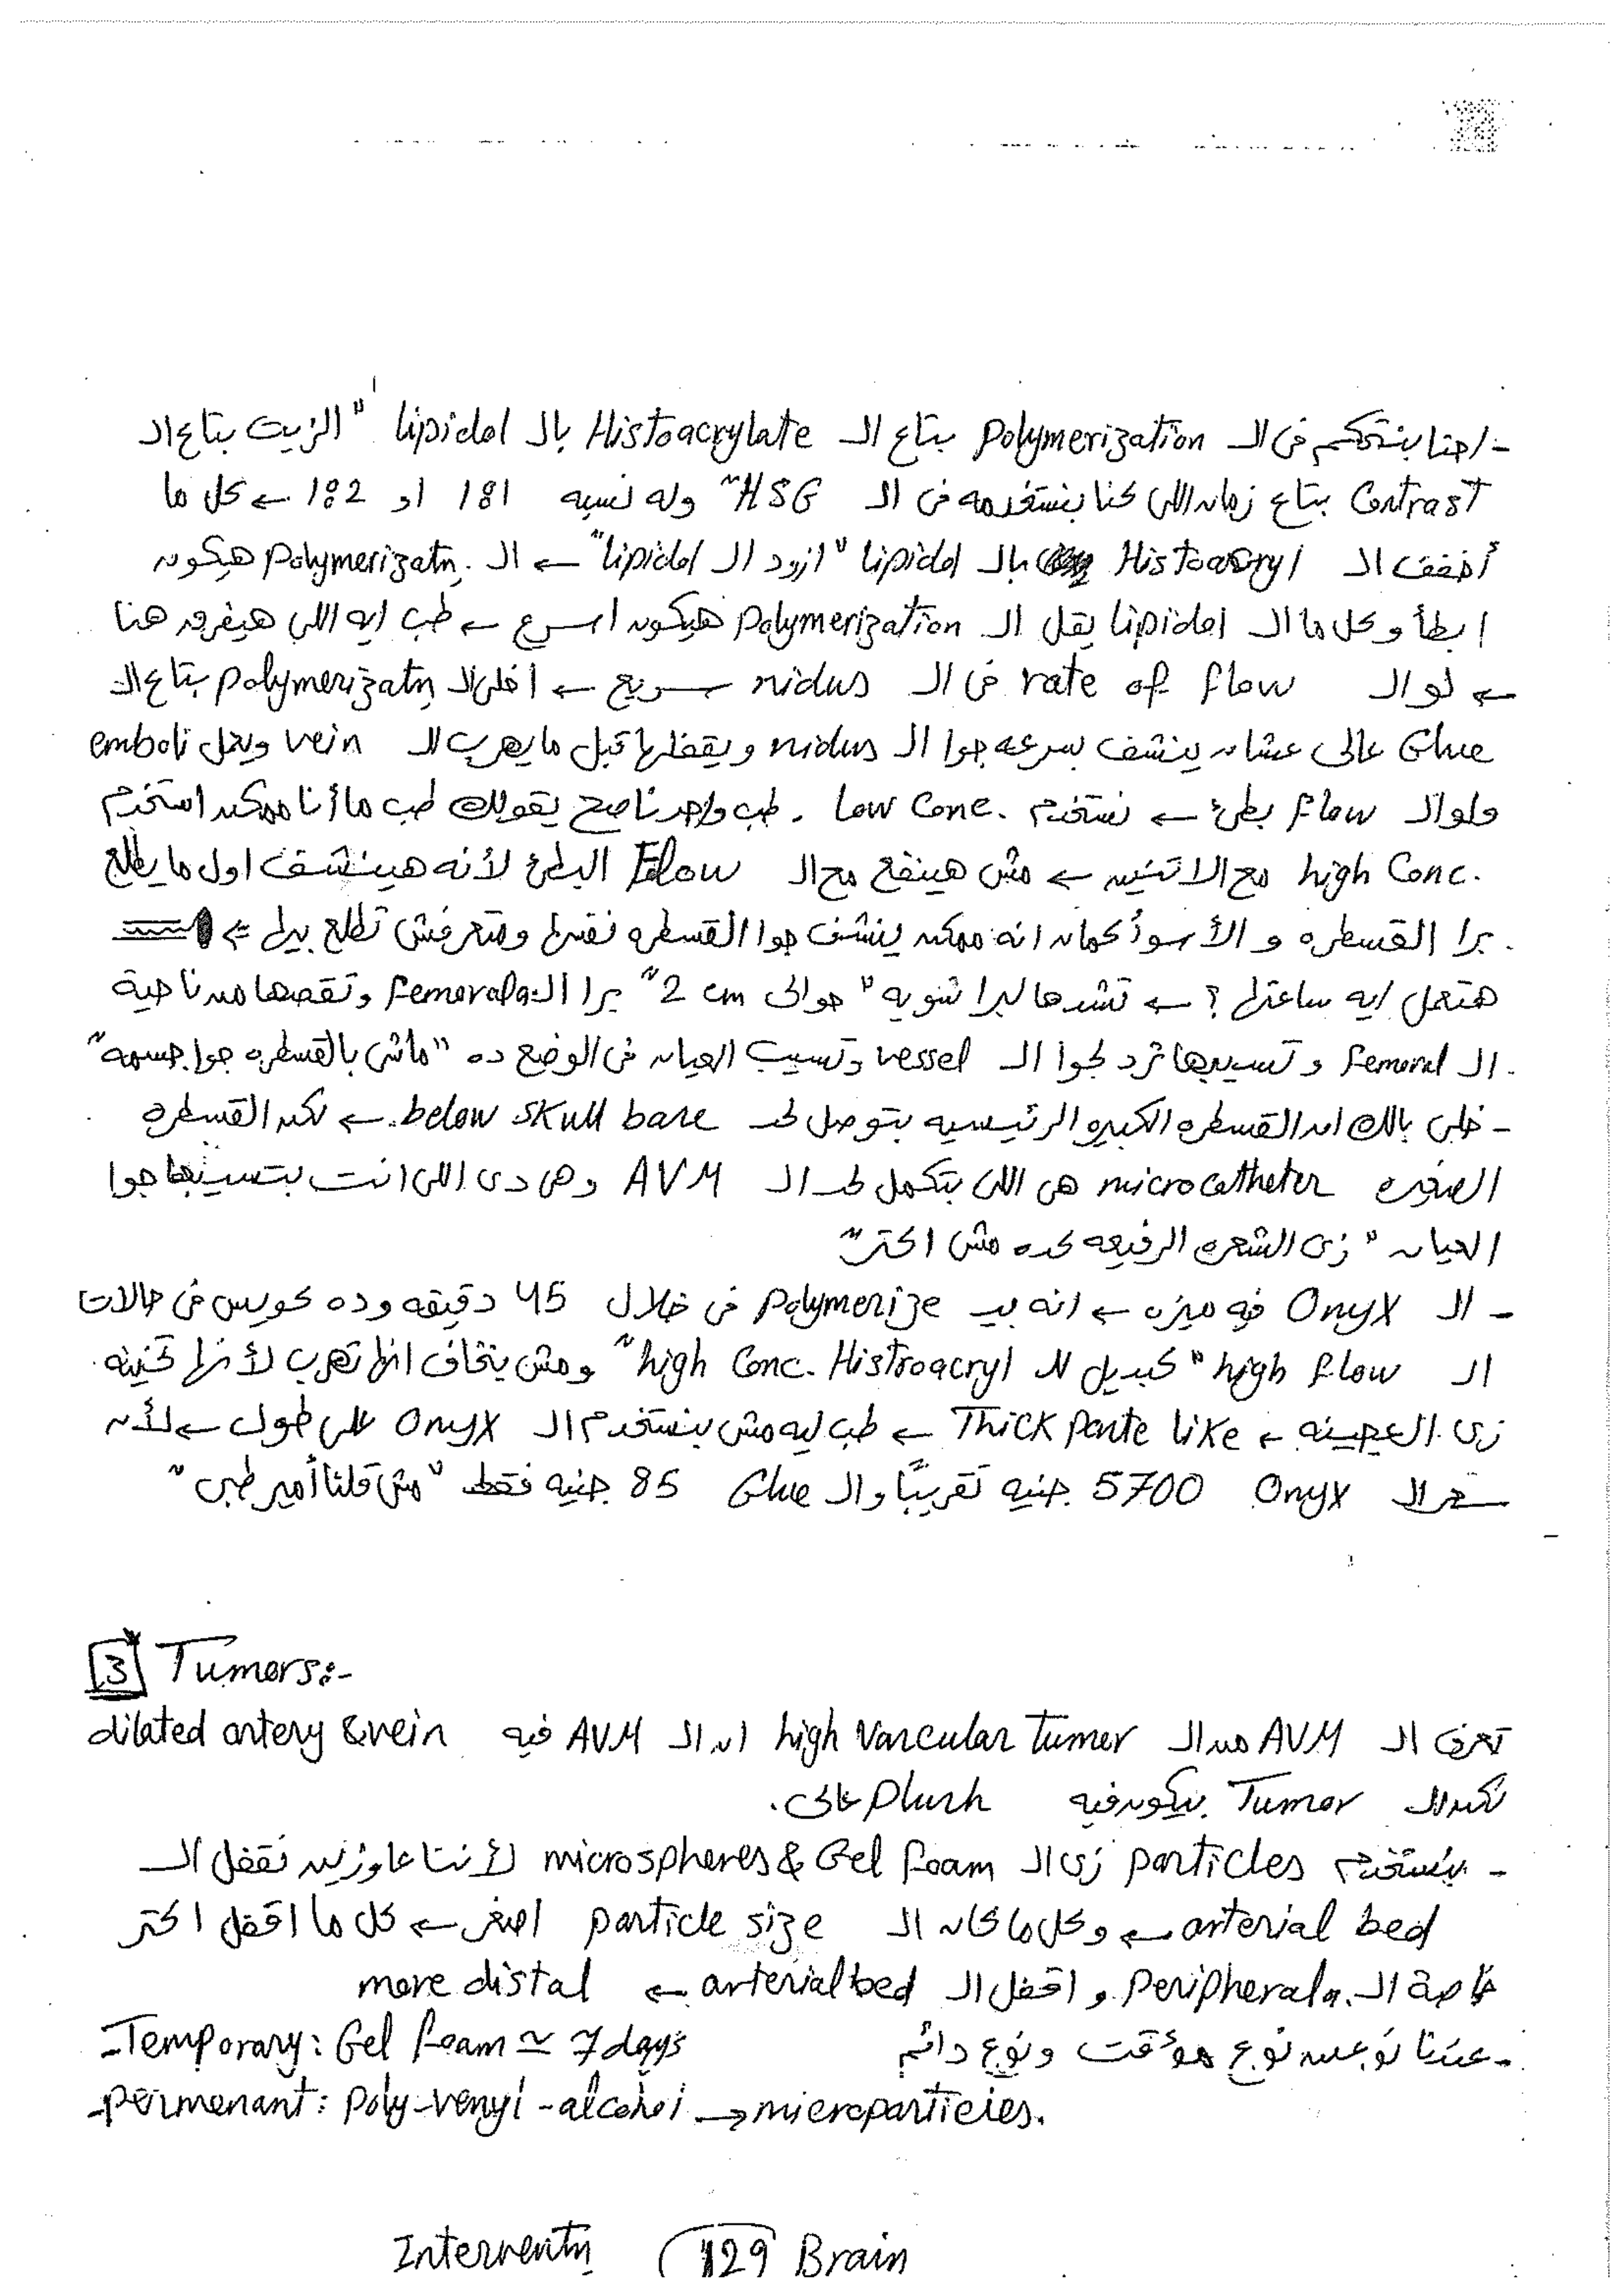 - احنا بنتحكم فى الـ Polymerization بتاع الـ Histoacrylate بالـ Lipidol "الزيت بتاع الـ
Contrast بتاع زمان اللى كنا بنستخدمه فى الـ HSG" وله نسبه 1:1 او 1:2 ← كل ما
أخفف الـ Histoacryl بالـ Lipidol "ازود الـ Lipidol" ← الـ Polymerizatn. هيكون
ابطأ وكل ما الـ Lipidol يقل الـ Polymerization هيكون اسرع ← طب ايه اللى هيفرق هنا
← لو الـ rate of flow فى الـ nidus سريع ← اخلى الـ Polymerizatn بتاع الـ
Glue عالى عشان ينشف بسرعه جوا الـ nidus ويقفلها قبل ما يهرب للـ vein ويعمل emboli
ولو الـ flow بطئ ← نستخدم low Conc. . طب واحد ناصح يقولك طب ما أنا ممكن استخدم
high Conc. مع الاتنين ← مش هينفع مع الـ Flow البطئ لأنه هينشف اول ما يطلع
برا القسطره و الأسوأ كمان انه ممكن ينشف جوا القسطره نفسها ومتعرفش تطلع بيها ⇐
هتعمل ايه ساعتها ؟ ← تشدها لبرا شويه "حوالى 2 cm" برا الـ Femoral a. وتقصها من ناحية
الـ Femoral و تسيبها ترد لجوا الـ vessel وتسيب العيان فى الوضع ده "ماشى بالقسطره جوا جسمه"
- خلى بالك ان القسطره الكبيره الرئيسيه بتوصل لحد below skull base. ← لكن القسطره
الصغيره microcatheter هى اللى بتكمل لحد الـ AVM وهى دى اللى انت بتسيبها جوا
العيان "زى الشعره الرفيعه كده مش اكتر"
- الـ Onyx فيه ميزه ← انه بيـ Polymerize فى خلال 45 دقيقه وده كويس فى حالات
الـ high flow "كبديل للـ high Conc. Histroacryl" ومش بتخاف انها تهرب لأنها تخينه
زى العجينه ← Thick paste like ← طب ليه مش بنستخدم الـ Onyx على طول ← لأن
سعر الـ Onyx 5700 جنيه تقريباً و الـ Glue 85 جنيه فقط "مش قلنا أمير طبى"
3 Tumors:-
تعرف الـ AVM من الـ high Vascular Tumer ان الـ AVM فيه dilated artery & vein
لكن الـ Tumor بيكون فيه Plush عالى.
- بنستخدم particles زى الـ microspheres & Gel foam لأننا عاوزين نقفل الـ
arterial bed ← وكل ما كان الـ particle size اصغر ← كل ما اقفل اكتر
خاصة الـ Peripheral a. و اقفل الـ arterial bed ← more distal
- عندنا نوعين نوع مؤقت ونوع دائم
- Temporary: Gel foam ≃ 7 days
- permenant: Poly-venyl-alcohol → microparticles.
Interventn 129 Brain